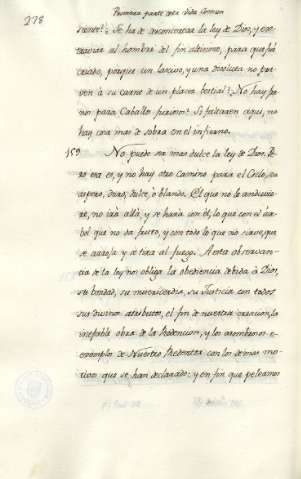 278
Primera parte de la Vida Comun
Se ha de encontrar la ley de Dios, y ex
traviar al hombre del fin ultimo, para que fué
criado, porque un lascivo, y una disoluta no pa
ren à su carne de un placer bestial? No hay fre
no para Caballo furioso? Si faltaren aqui, no
hay cosa mas de sobra en el infierno.
159. No puede ser mas dulce la ley de Dios. Pe
ro esa es, y no hay otro camino para el Cielo, sea
aspero, duro, dulce, ò blando. El que no le anduvie
re, no irà allà, y se harà con èl, lo que con el ar
bol que no da fruto, y con todo lo que no sirve, que
se arroja y se tira al fuego. A esta observan
cia de la ley nos obliga la obediencia debida à Dios,
su bondad, su misericordia, su Justicia con todos
sus divinos atributos, el fin de nuestra creacion, la
inefable obra de la Redencion, y los asombrosos
exemplos de Nuestro Redentor con los demas mo
tivos que se han declarado: y en fin que peleamos